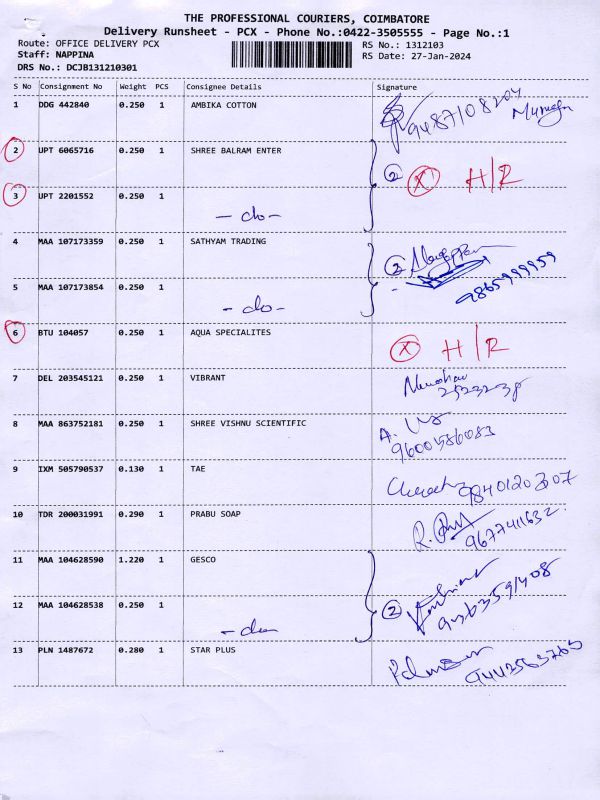 THE PROFESSIONAL COURIERS, COIMBATORE
Delivery Runsheet - PCX - Phone No.:0422-3505555 - Page No.:1
Route: OFFICE DELIVERY PCX RS No.: 1312103
Staff: NAPPINA RS Date: 27-Jan-2024
DRS No.: DCJB131210301
S No Consignment No Weight PCS Consignee Details Signature
1 DDG 442840 0.250 1 AMBIKA COTTON 9487108204
2 UPT 6065716 0.250 1 SHREE BALRAM ENTER 2 X H/R
3 UPT 2201552 0.250 1
- do -
4 MAA 107173359 0.250 1 SATHYAM TRADING 2
5 MAA 107173854 0.250 1 9865999959
- do -
6 BTU 104057 0.250 1 AQUA SPECIALITES X H/R
7 DEL 203545121 0.250 1 VIBRANT
8 MAA 863752181 0.250 1 SHREE VISHNU SCIENTIFIC 9600586083
9 IXM 505790537 0.130 1 TAE
10 TDR 200031991 0.290 1 PRABU SOAP 9677411632
11 MAA 104628590 1.220 1 GESCO
12 MAA 104628538 0.250 1 2
- do
13 PLN 1487672 0.280 1 STAR PLUS